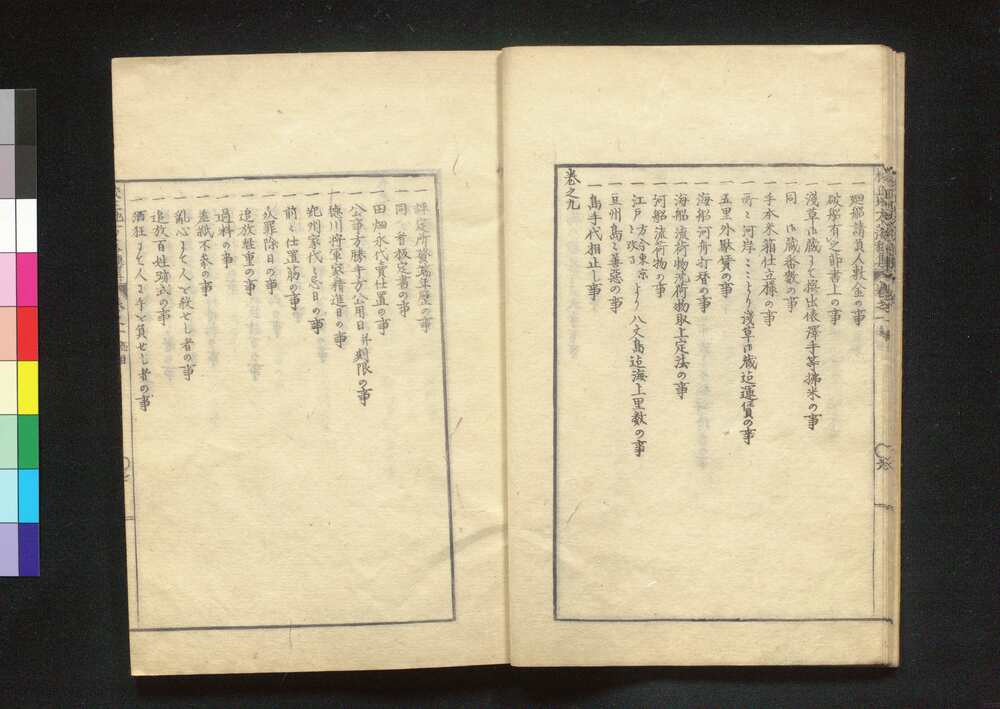 一 廻船請負人敷金の事
一 破船有之節書上の事
一 浅草御蔵にて撰出俵澤手等拂米の事
一 同 御蔵番数の事
一 手本米箱仕立様の事
一 所々河岸ゟ浅草御蔵迄運賃の事
一 五里外駄賃の事
一 海船河舟打替の事
一 海船流荷物沈荷物取上定法の事
一 河船流荷物の事
一 江戸 より八丈島迄海上里数の事
一 豆州島々善悪の事
一 島手代相止し事
巻之九
一 評定所 年歴の事
一 同 書の事
一 田畑永代賣仕置の事
一 公事方勝手方公用日并刻限の事
一 徳川将軍家精進日の事
一 紀州家代々忌日の事
一 前々仕置筋の事
一 火罪除日の事
一 追放軽重の事
一 過料の事
一 差紙不参の事
一 乱心にて人を殺せし者の事
一 追放百姓跡式の事
一 酒狂にて人に手を負せし者の事